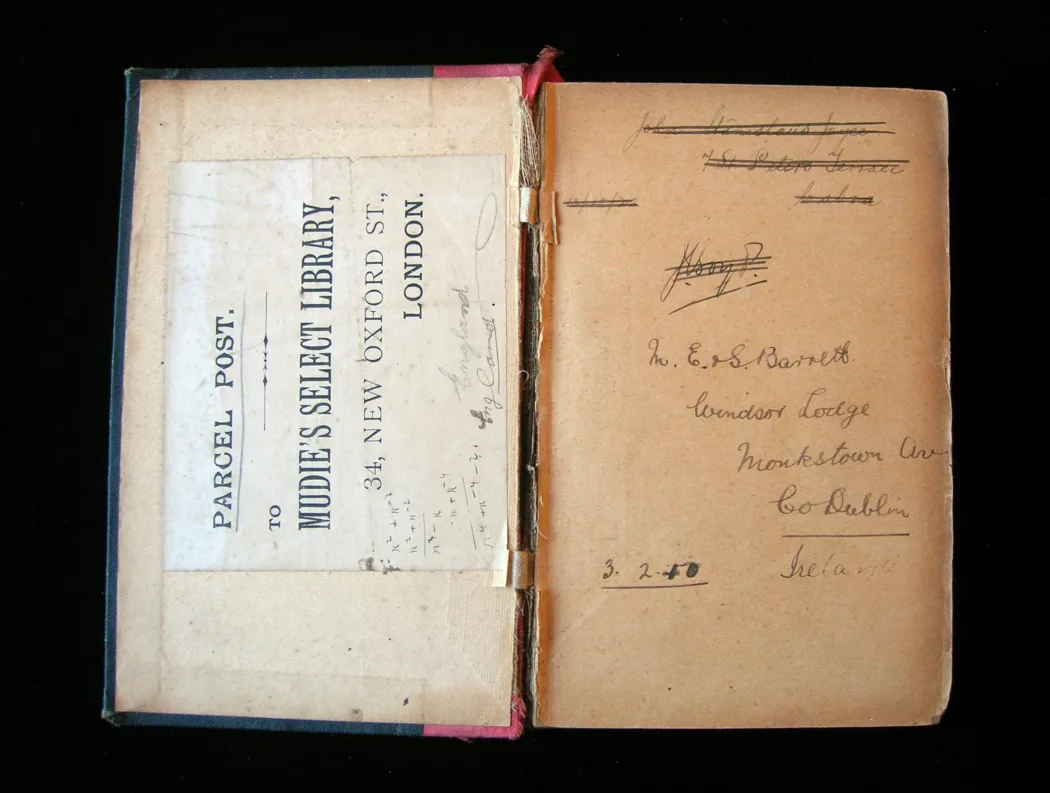 PARCEL POST.
TO
MUDIE'S SELECT LIBRARY,
34, NEW OXFORD ST.,
LONDON.
England
x² + x⁻²
x² + x⁻²
John Stanislaus Joyce
7 St Peters Terrace
Cabra
M. E. & G. Barrett.
Windsor Lodge
Monkstown Ave
Co Dublin
Ireland
3. 2. 10